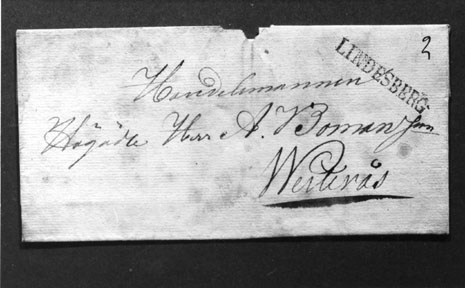 2
LINDESBERG
Handelsmannen
Högädle Herr A. Boman
Westerås